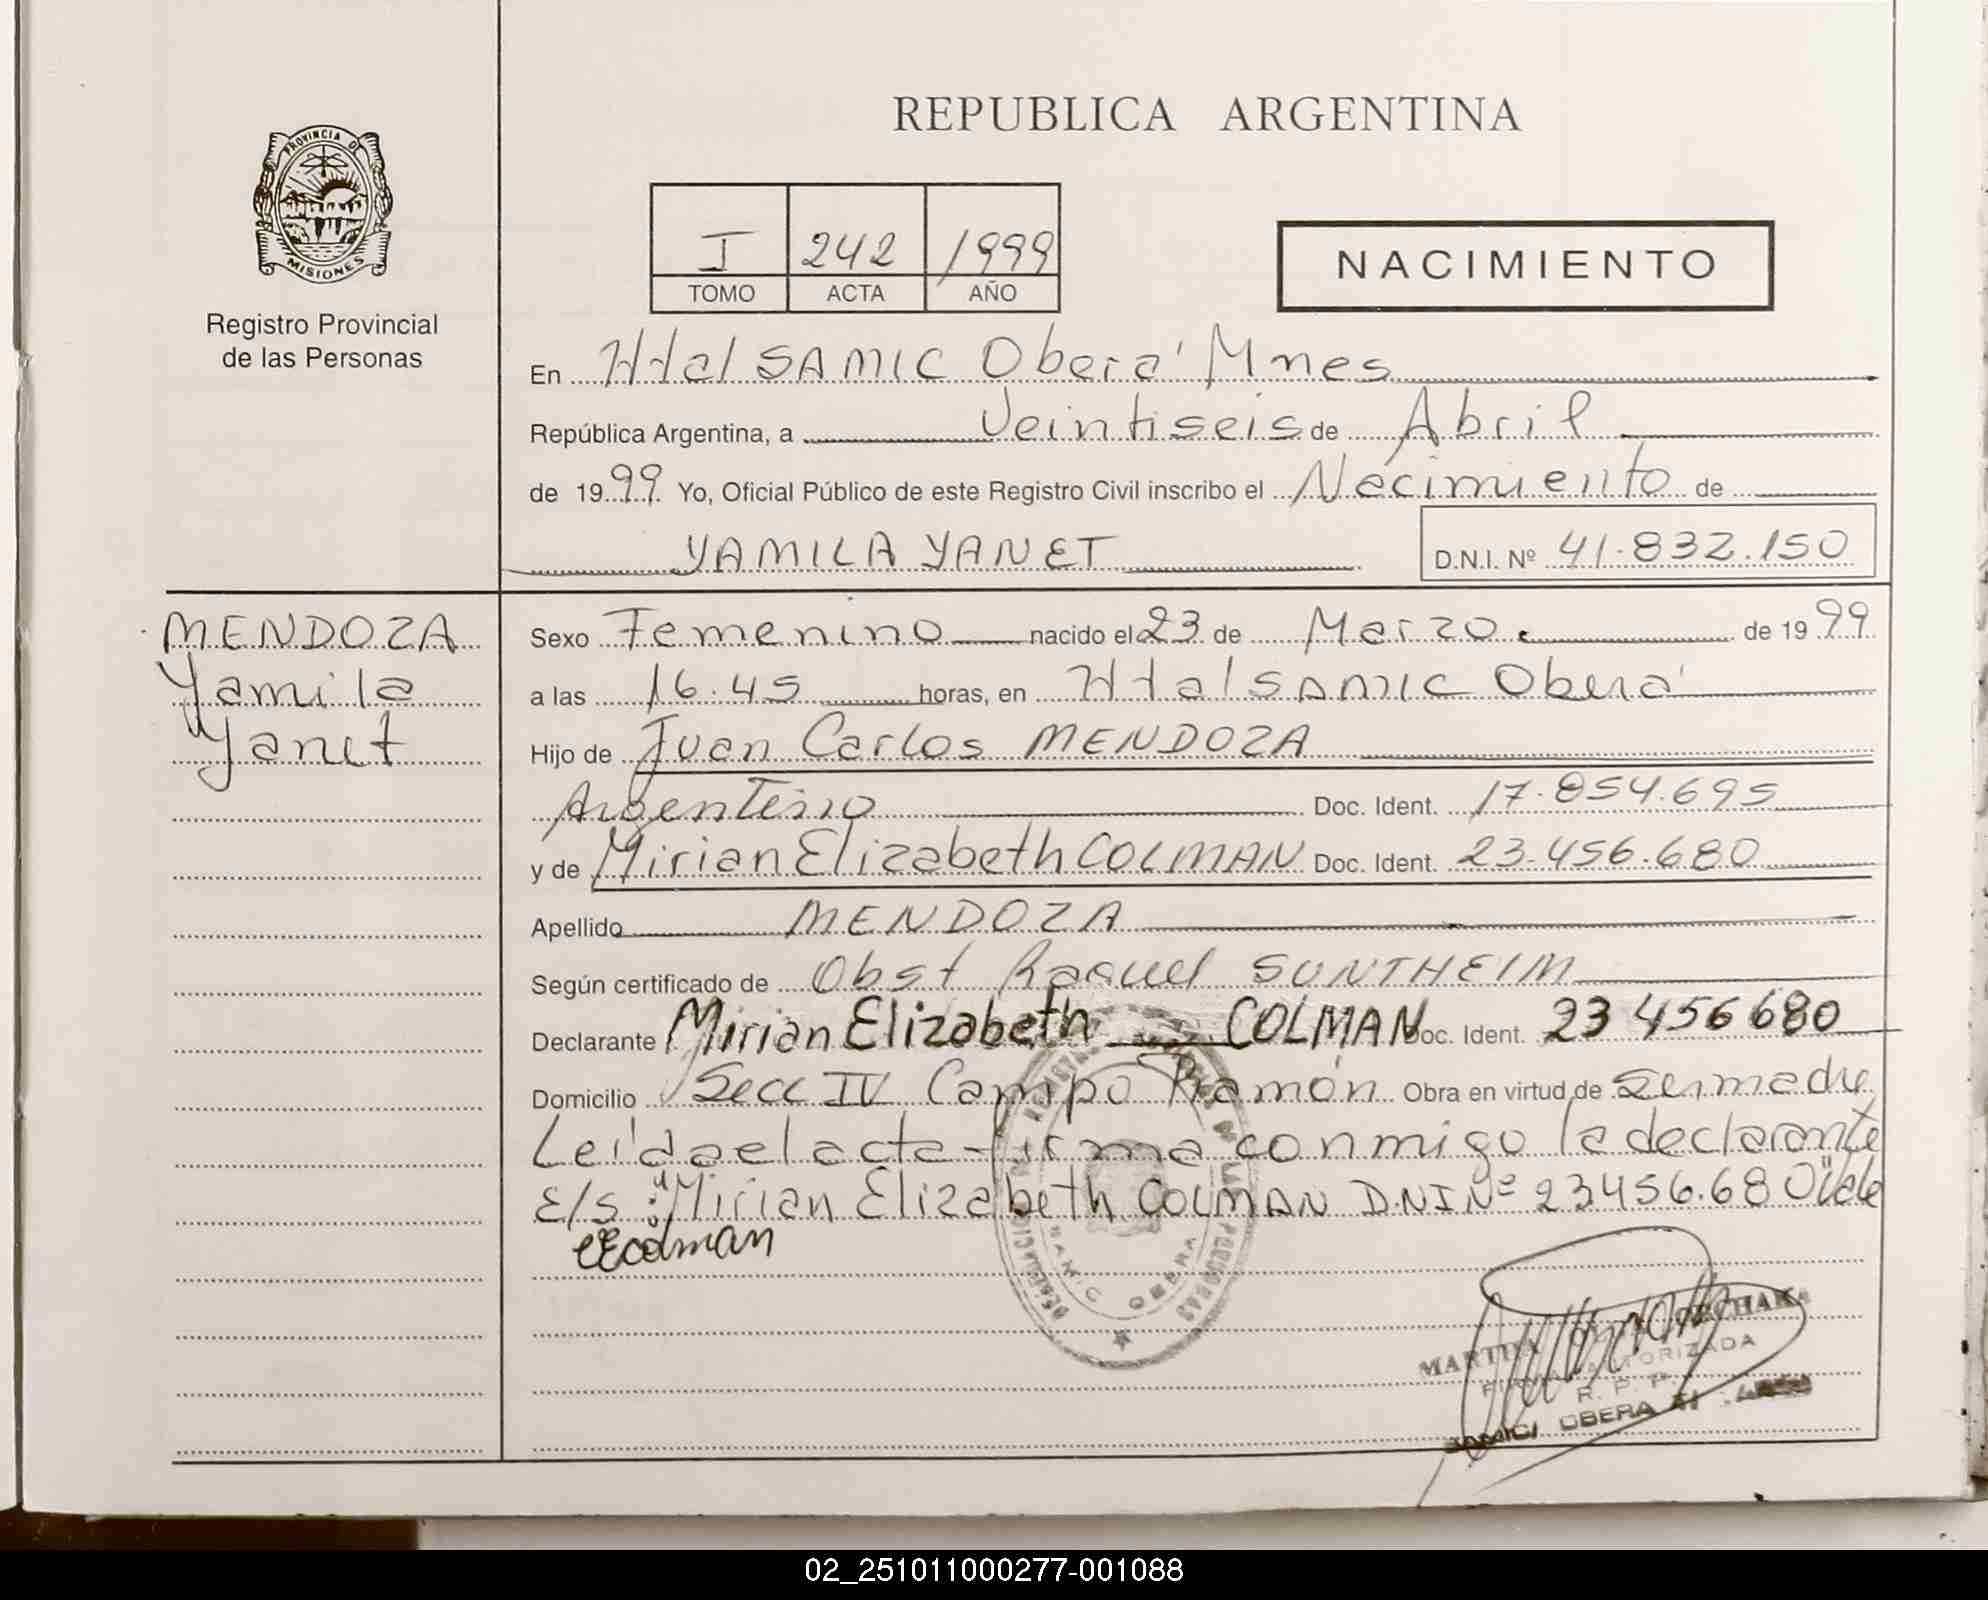 REPUBLICA ARGENTINA
PROVINCIA DE
MISIONES
Registro Provincial
de las Personas
I 242 1999
TOMO ACTA AÑO
NACIMIENTO
En Htal SAMIC Oberá Mnes
República Argentina, a Veintiseis de Abril
de 1999 Yo, Oficial Público de este Registro Civil inscribo el Nacimiento de
YAMILA YANET D.N.I. Nº 41.832.150
MENDOZA
Yamila
Yanet
Sexo Femenino nacido el 23 de Marzo de 1999
a las 16.45 horas, en Htal SAMIC Oberá
Hijo de Juan Carlos MENDOZA
Argentino Doc. Ident. 17.854.695
y de Mirian Elizabeth COLMAN Doc. Ident. 23.456.680
Apellido MENDOZA
Según certificado de Obst Raquel SUNTHEIM
Declarante Mirian Elizabeth COLMAN Doc. Ident. 23 456 680
Domicilio Secc IV Campo Ramón Obra en virtud de ser madre
Leída el acta firma conmigo la declarante
E/S: "Mirian Elizabeth COLMAN D.N.I Nº 23456.680" Vale
SAMIC OBERA
MARTHA
FIRMA AUTORIZADA
R. P. P.
OBERA
02_251011000277-001088